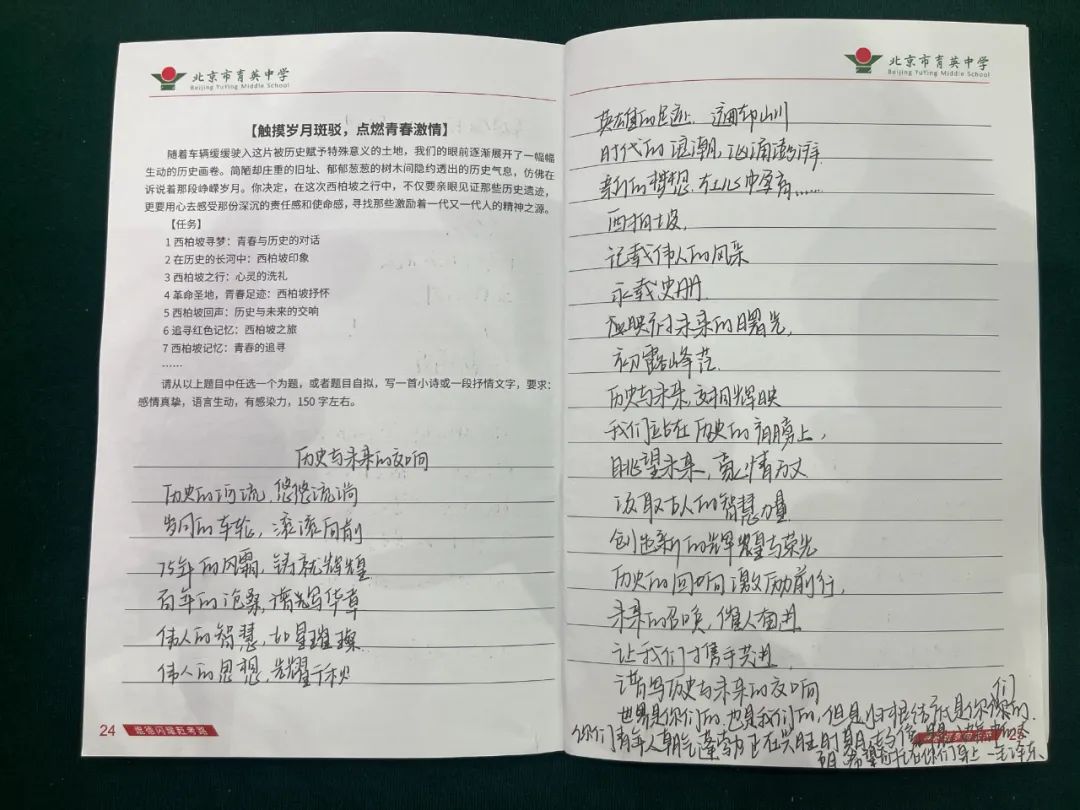 北京市育英中学
Beijing YuYing Middle School
【触摸岁月斑驳，点燃青春激情】
随着车辆缓缓驶入这片被历史赋予特殊意义的土地，我们的眼前逐渐展开了一幅幅
生动的历史画卷。简陋却庄重的旧址、郁郁葱葱的树木间隐约透出的历史气息，仿佛在
诉说着那段峥嵘岁月。你决定，在这次西柏坡之行中，不仅要亲眼见证那些历史遗迹，
更要用心去感受那份深沉的责任感和使命感，寻找那些激励着一代又一代人的精神之源。
【任务】
1 西柏坡寻梦：青春与历史的对话
2 在历史的长河中：西柏坡印象
3 西柏坡之行：心灵的洗礼
4 革命圣地，青春足迹：西柏坡抒怀
5 西柏坡回声：历史与未来的交响
6 追寻红色记忆：西柏坡之旅
7 西柏坡记忆：青春的追寻
……
请从以上题目中任选一个为题，或者题目自拟，写一首小诗或一段抒情文字，要求：
感情真挚，语言生动，有感染力，150 字左右。
历史与未来的交响
历史的河流，悠悠流淌
岁月的车轮，滚滚向前
75年的风霜，铸就辉煌
百年的沧桑，谱写华章
伟人的智慧，如星璀璨
伟人的思想，光耀千秋
24
北京市育英中学
Beijing YuYing Middle School
英雄的足迹，遍布山川
时代的浪潮，汹涌澎湃
新的梦想，在心中孕育……
西柏坡，
记载伟人的风采
永载史册
映衬未来的曙光，
初露峰范
历史与未来，交相辉映
我们站在历史的肩膀上，
眺望未来，豪情万丈
汲取古人的智慧力量
创造新的辉煌与荣光
历史的回响，激励前行，
未来的召唤，催人奋进
让我们携手共进
谱写历史与未来的交响
世界是你们的，也是我们的，但是归根结底是你们的.
你们青年人朝气蓬勃正在兴旺时期
希望寄托在你们身上 -毛泽东